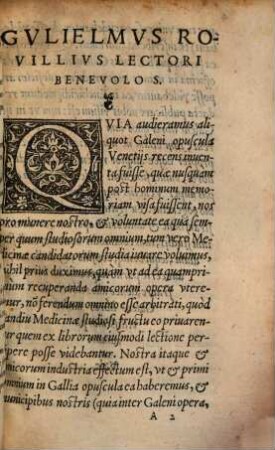 GVLIELMVS RO-
VILLIVS LECTORI
BENEVOLO S.
QVIA audieramus ali-
quot Galeni opuscula
Venetijs recens inuen-
ta fuisse, quæ nusquam
post hominum memo-
riam visa fuissent, nos
pro munere nostro, & voluntate ea qua sem-
per quum studiosorum omnium, tum vero Me-
dicinæ candidatorum studia iuuare volumus,
nihil prius duximus, quàm vt ad ea quampri-
mum recuperanda amicorum opera vtere-
mur, nõ ferendum omnino esse arbitrati, quòd
tandiu Medicinæ studiosi fructu eo priuaren-
tur quem ex librorum eiusmodi lectione per-
cipere posse videbantur. Nostra itaque &
amicorum industria effectum est, vt & primi
omnium in Gallia opuscula ea haberemus, &
municipibus nostris (quia inter Galeni opera,
A 2